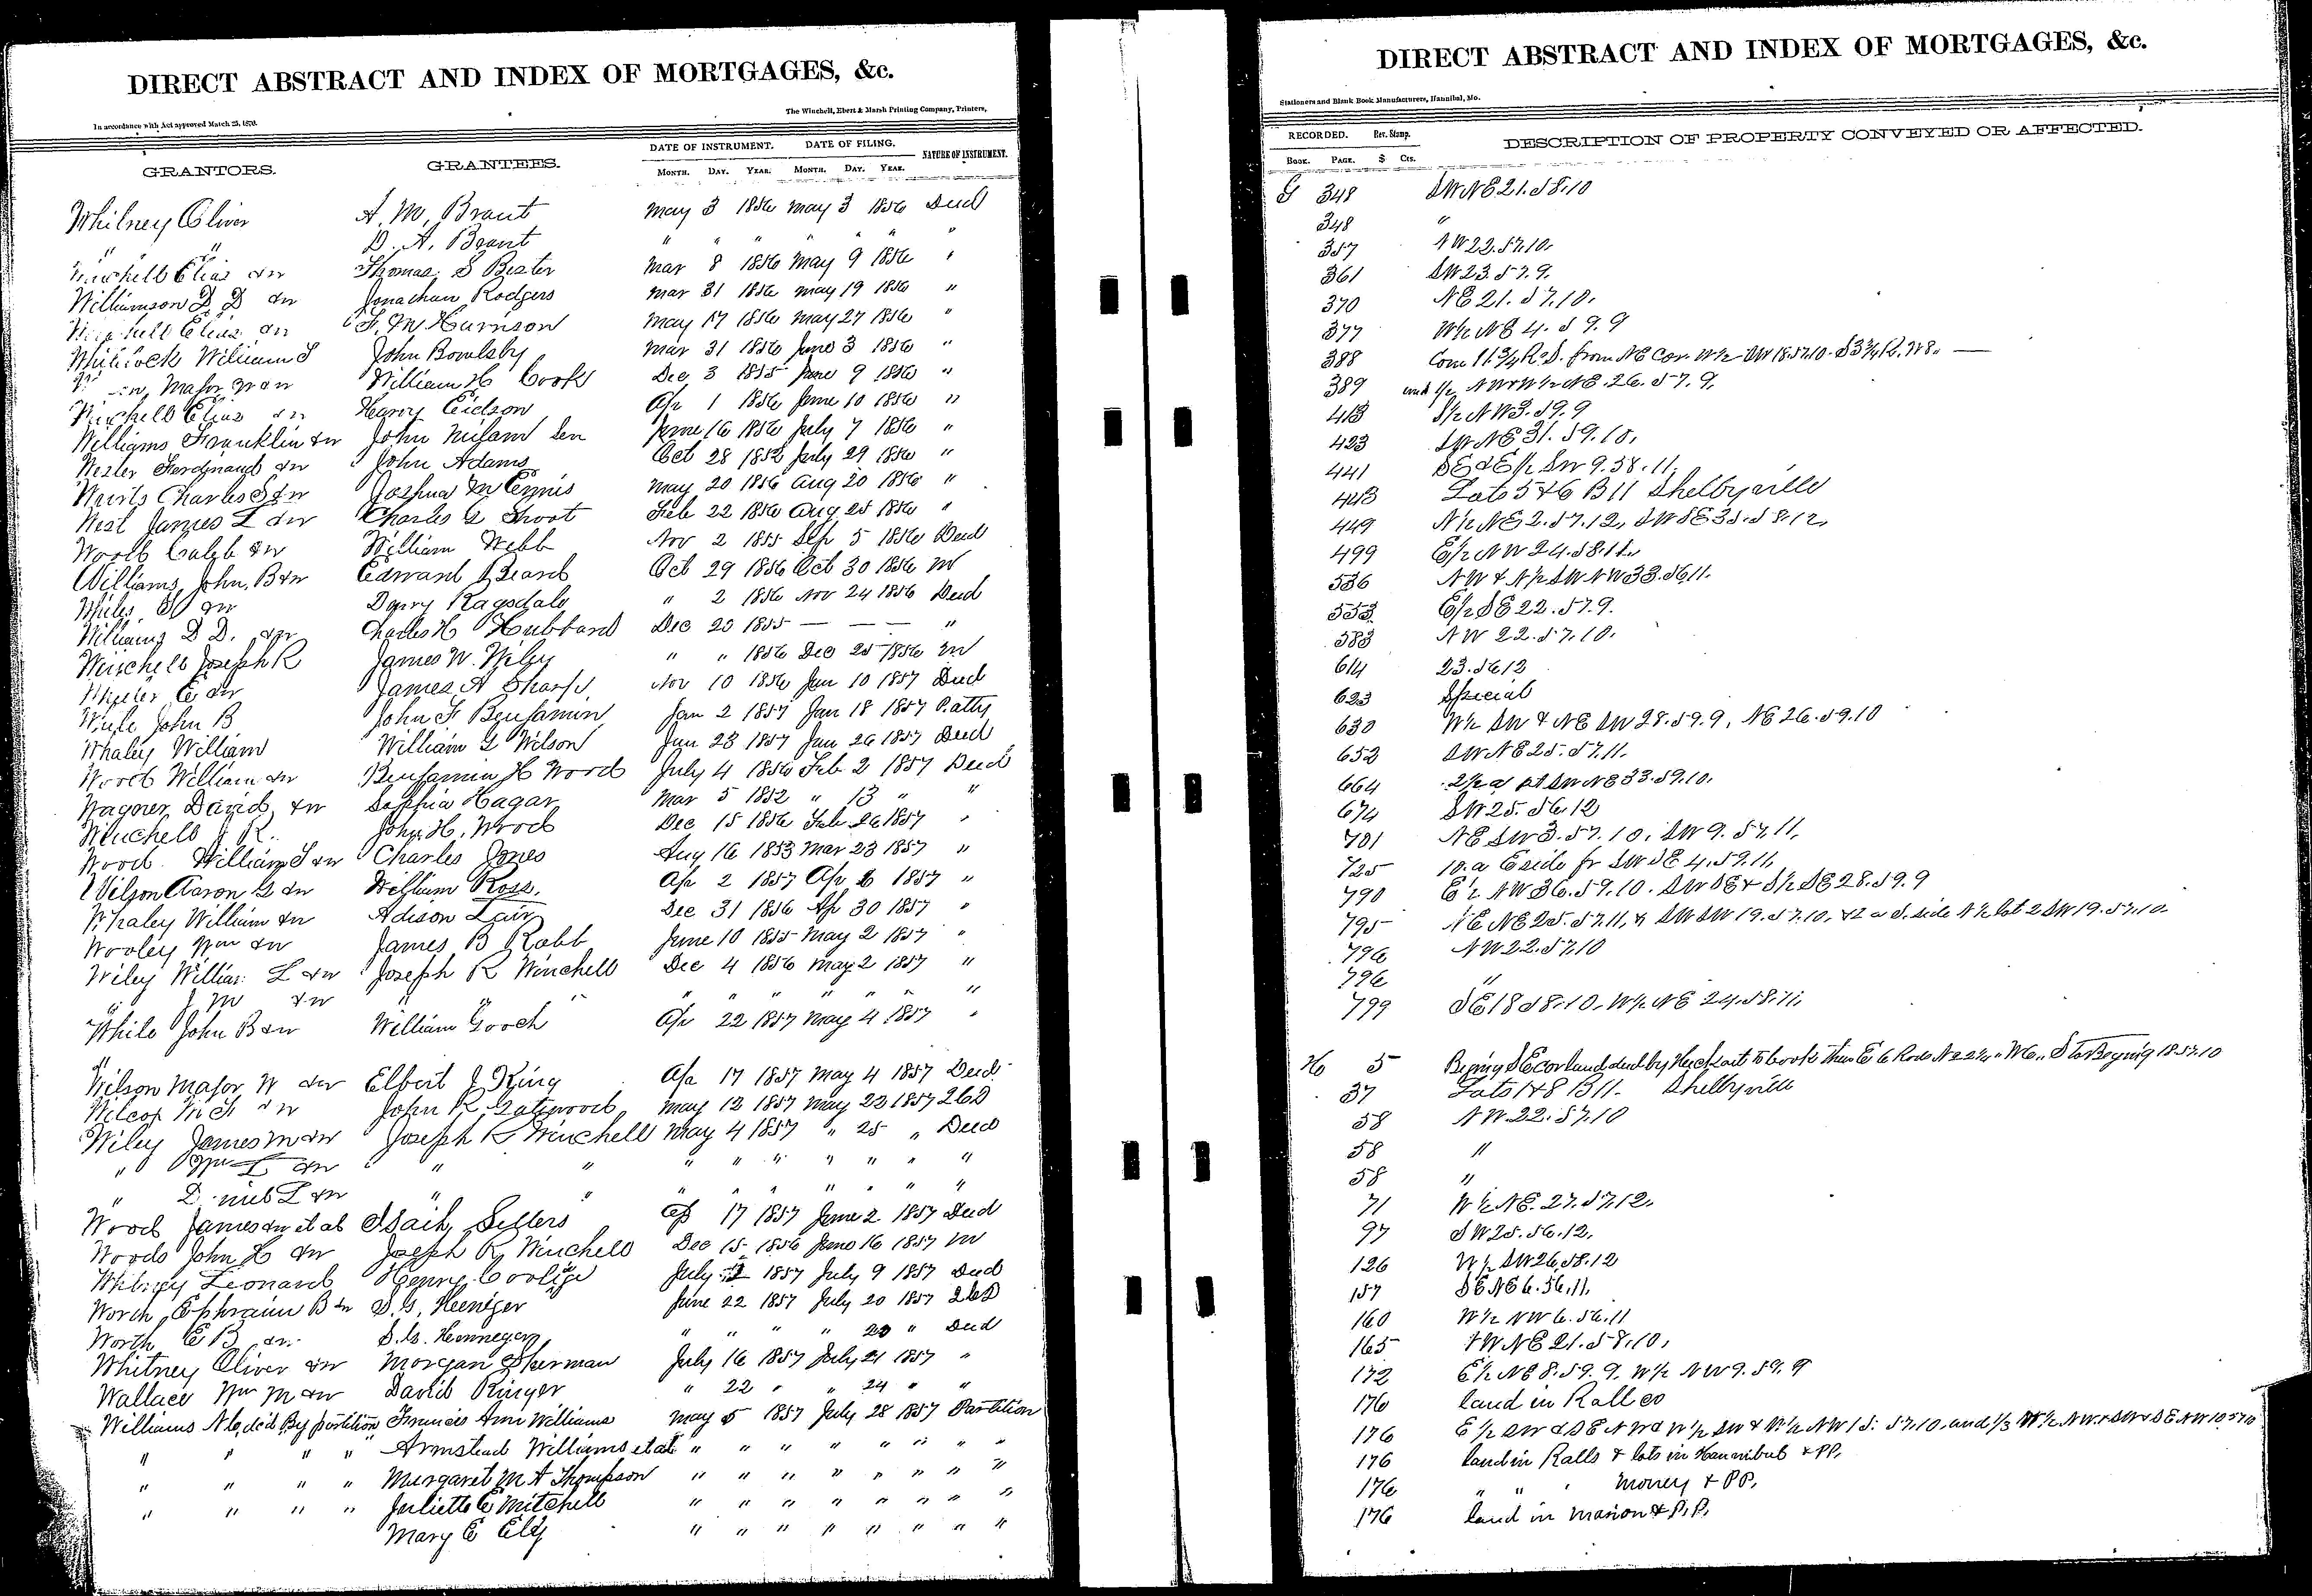 DIRECT ABSTRACT AND INDEX OF MORTGAGES, &c.
In accordance with Act approved March 25, 1870.
The Winchell, Ebert & Marsh Printing Company, Printers,
GRANTORS. GRANTEES. DATE OF INSTRUMENT. DATE OF FILING. NATURE OF INSTRUMENT.
MONTH. DAY. YEAR. MONTH. DAY. YEAR.
Whitney Oliver A. M. Brant May 3 1856 May 3 1856 Deed
" " D. A. Brant " " " " " " "
Winchell Elias &w Thomas S Bester Mar 8 1856 May 9 1856 "
Williamson D D &w Jonathan Rodgers Mar 31 1856 May 19 1856 "
Winchell Elias &w F. M. Harrison May 17 1856 May 27 1856 "
Whitlock William S John Bowlsby Mar 31 1856 June 3 1856 "
Major W &w William H Cook Dec 3 1855 June 9 1856 "
Winchell Elias &w Harry Eidson Ap 1 1856 June 10 1856 "
Williams Franklin &w John Milsam Sen June 16 1856 July 7 1856 "
Ferdinand &w John Adams Oct 28 1852 July 29 1856 "
Charles S &w Joshua M Ennis May 20 1856 Aug 20 1856 "
West James L &w Charles G Shoot Feb 22 1856 Aug 25 1856 "
Wood Caleb &w William Webb Nov 2 1855 Sep 5 1856 Deed
Williams John B &w Edward Beard Oct 29 1856 Oct 30 1856 M
&w Ragsdale " 2 1856 Nov 24 1856 Deed
Williams D D. &w Charles H Hubbard Dec 20 1855 — — — "
Winchell Joseph R James W. Wiley " " 1856 Dec 25 1856 M
Wheeler E &w James A Sharp Nov 10 1856 Jan 10 1857 Deed
John B John F Benjamin Jan 2 1857 Jan 18 1857 P. atty
Whaley William William G Wilson Jan 23 1857 Jan 26 1857 Deed
Wood William &w Benjamin H Wood July 4 1856 Feb 2 1857 Deed
Wagner David &w Sophia Hagar Mar 5 1852 " 13 " "
Winchell J R. John H. Wood Dec 15 1856 Feb 26 1857 "
Wood William S &w Charles Jones Aug 16 1853 Mar 23 1857 "
Wilson Aaron G &w William Ross. Ap 2 1857 Ap 6 1857 "
Whaley William &w Adison Lair Dec 31 1856 Ap 30 1857 "
Wooley Wm &w James B Robb June 10 1855 May 2 1857 "
Wiley William L &w Joseph R Winchell Dec 4 1856 May 2 1857 "
" J M &w " " " " " " " " "
White John B &w William Gooch Ap 22 1857 May 4 1857 "
Wilson Major W &w Elbert J King Ap 17 1857 May 4 1857 Deed
Wilcox W F &w John R Gatewood May 12 1857 May 22 1857 2 & D
Wiley James M &w Joseph R Winchell May 4 1857 " 25 " Deed
" Wm L &w " " " " " " " " "
" L &w " " " " " " " " "
Wood James &w et al Isaih Sellers Ap 17 1857 June 2 1857 Deed
Woods John H &w Joseph R Winchell Dec 15 1856 June 16 1857 M
Leonard Henry July 2 1857 July 9 1857 Deed
Worth, Ephraim B &w S. G. June 22 1857 July 20 1857 2 & D
Worth E B &w S. G. Hennegan " " " " 20 " Deed
Whitney Oliver &w Morgan Sherman July 16 1857 July 21 1857 "
Wallace Wm M &w David Ringer " 22 " " 24 " "
Williams N C dec'd By partition Francis Ann Williams May 5 1857 July 28 1857 Partition
" " " " Armstead Williams et al " " " " " " " "
" " " " Margaret M A Thompson " " " " " " " "
" " " " Juliette C Mitchell " " " " " " " "
Mary E Ely " " " " " " " "
DIRECT ABSTRACT AND INDEX OF MORTGAGES, &c.
Stationers and Blank Book Manufacturers, Hannibal, Mo.
RECORDED. Rev. Stamp. DESCRIPTION OF PROPERTY CONVEYED OR AFFECTED.
BOOK. PAGE. $ Cts.
G 348 SW NE 21. 58. 10
348 "
357 NW 22. 57. 10.
361 SW 23. 57. 9.
370 NE 21. 57. 10.
377 W½ NE 4. 59. 9
388 Com 11. ¾ R. S. from NE Cor. W½ SW 18. 57. 10. S 3¾ R. W 8. —
389 und ½ NW & W½ NE. 26. 57. 9.
413 S½ NW 3. 59. 9
423 SW NE 31. 59. 10.
441 SE & E½ SW 9. 58. 11.
443 Lots 5 & 6 B 11 Shelbyville
449 N½ NE 2. 57. 12, SW SE 35. 58. 12,
499 E½ NW 24. 58. 11.
536 NW & N½ SW NW 33. 56. 11.
553 E½ SE 22. 57. 9.
583 NW 22. 57. 10.
614 23. 56 12
623 Special
630 W½ SW & NE SW 28. 59. 9, NE 26. 59. 10
652 SW NE 25. 57. 11.
664 2½ a pt SW NE 33. 59. 10.
674 SW 25. 56. 12
701 NE SW 3. 57. 10, SW 9. 57. 11,
725 10. a E side fr SW SE 4. 59. 11,
790 E½ NW 36. 59. 10. SW SE & S½ SE 28. 59. 9
795 NE NE 25. 57. 11, & SW SW 19. 57. 10, & 2 a S. side N½ lot 2 SW 19. 57. 10.
796 NW 22. 57. 10
796 "
799 SE 18 58. 10. W½ NE 24. 58. 11.
H 5 Begining SE cor land deed by to Cook Thence E 6 Rods N 22½ " W 6 " S to Begining 18 57. 10
37 Lots 1 & 8 B 11. Shelbyville
58 NW. 22. 57. 10
58 "
58 "
71 W½ NE. 27. 57. 12.
97 SW 25. 56. 12.
126 W½ SW 26. 58. 12
157 SE NE 6. 56. 11.
160 W½ NW 6. 56. 11
165 SW NE 21. 58. 10.
172 E½ NE 8. 59. 9. W½ NW 9. 59. 9
176 land in Rall co
176 E½ SW & SE NW & W½ SW & W½ NW 15. 57. 10. and ⅓ W½ NW & SW & SE NW 10. 57. 10
176 land in Ralls & lots in Hannibal & PP,
176 " " " money & PP,
176 land in Marion & P. P.